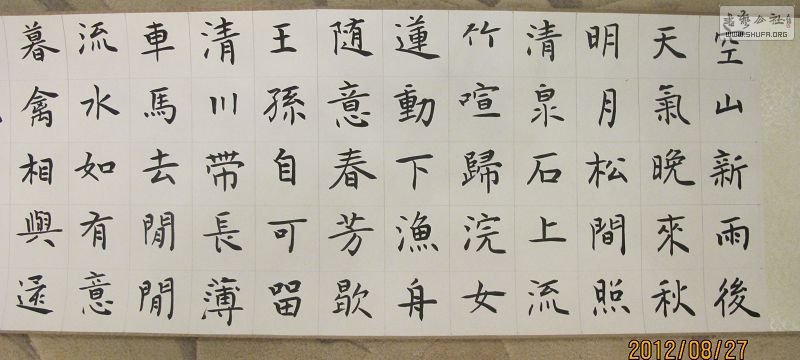 空山新雨後
天氣晚來秋
明月松間照
清泉石上流
竹喧歸浣女
蓮動下漁舟
随意春芳歇
王孫自可留
清川帶長薄
車馬去閒閒
流水如有意
暮禽相與還
書藝公社
WWW.SHUFA.ORG
2012/08/27